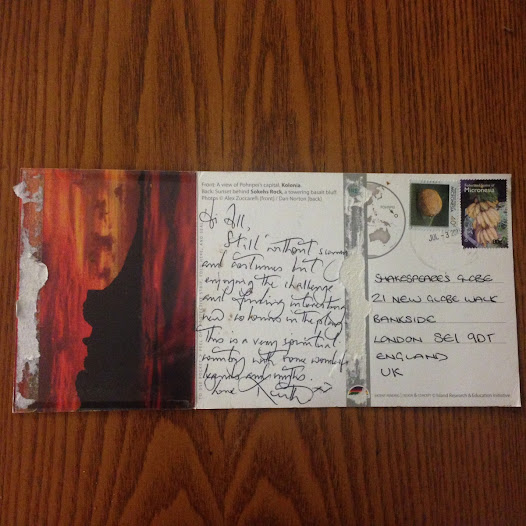 Front: A view of Pohnpei's capital, Kolonia.
Back: Sunset behind Sokehs Rock, a towering basalt bluff
Photos © Alex Zuccarelli (front) / Dan Norton (back)
Hi All,
Still without scenery
and costumes but
enjoying the challenge
and finding interesting
new colours in the play.
This is a very spiritual
country with some wonderful
legends and myths.
love
JUL - 3
Federated States of
Micronesia
SHAKESPEARE'S GLOBE
21 NEW GLOBE WALK
BANKSIDE
LONDON SE1 9DT
ENGLAND
UK
Island Research & Education Initiative